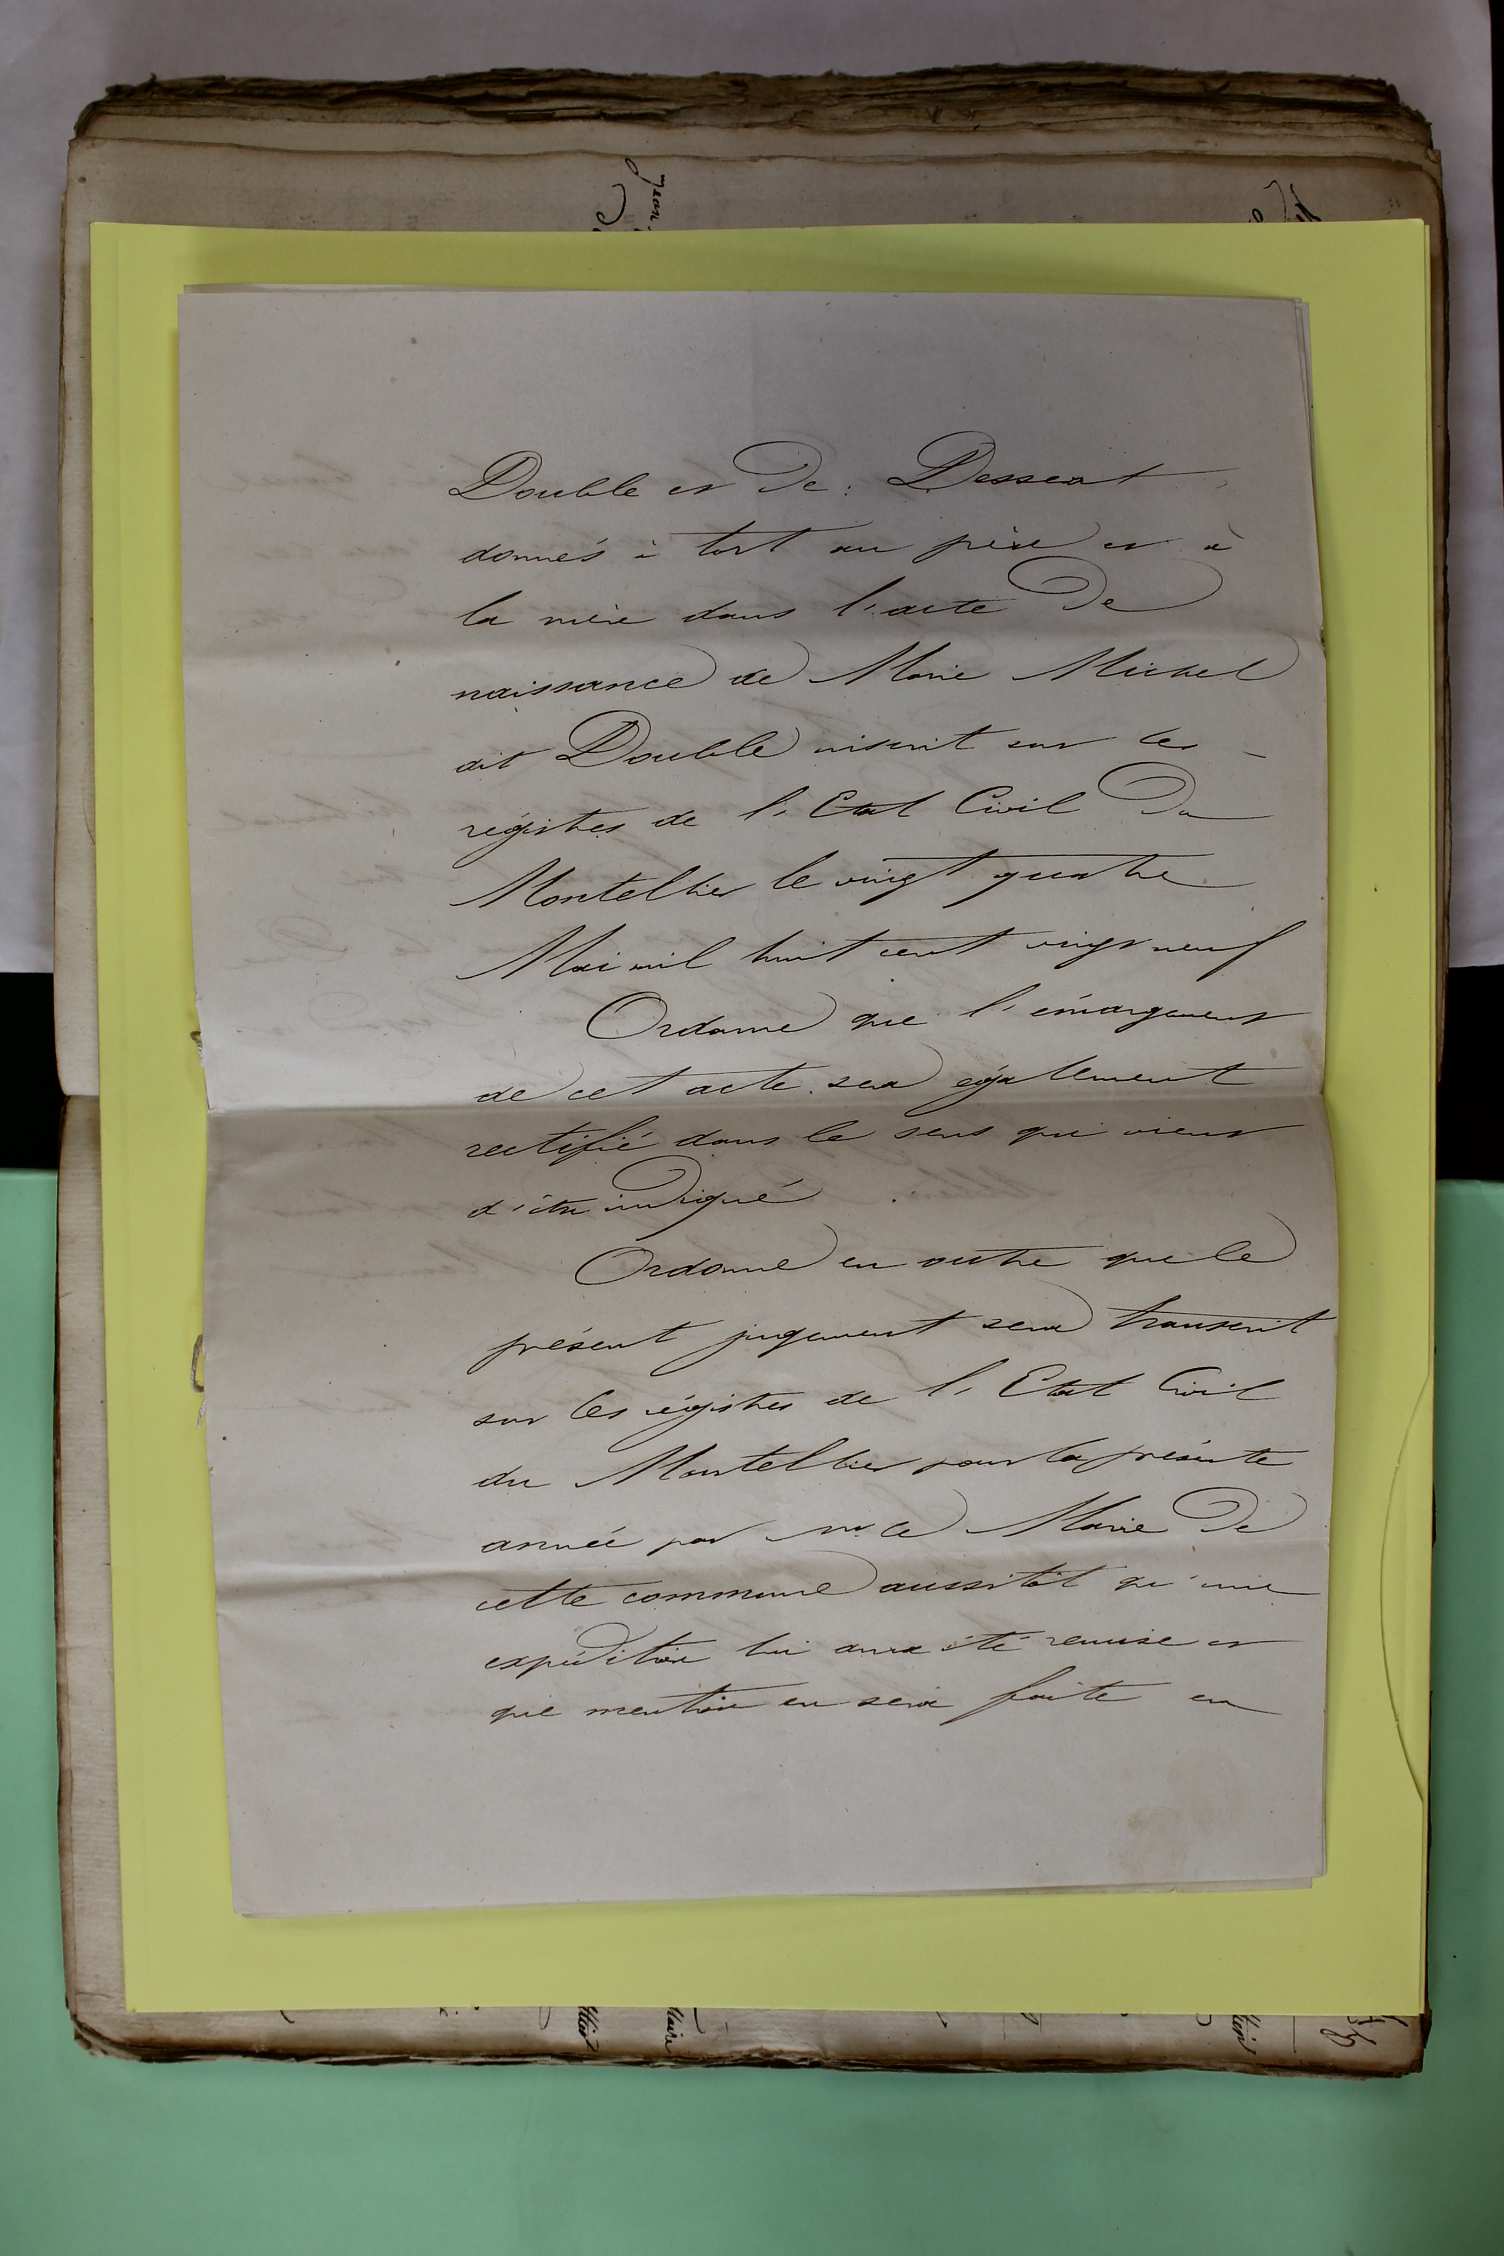 Double et de : Dessert
donnés à tort au père et à
la mère dans l'acte de
naissance de Marie Michel
dit Double inscrit sur les
régistres de l'Etat Civil du
Montellier le vingt quatre
Mai mil huit cent vingt neuf
Ordonne que l'émargement
de cet acte sera également
rectifié dans le sens qui vient
d'être indiqué.
Ordonne en outre que le
présent jugement sera transcrit
sur les régistres de l'Etat Civil
du Montellier pour la présente
année par Mr le Maire de
cette commune aussitôt qu'une
expédition lui aura été remise et
que mention en sera faite en